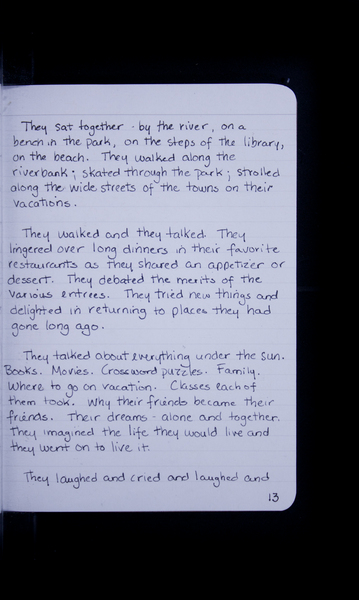 They sat together - by the river, on a
bench in the park, on the steps of the library,
on the beach. They walked along the
riverbank; skated through the park; strolled
along the wide streets of the towns on their
vacations.
They walked and they talked. They
lingered over long dinners in their favorite
restaurants as they shared an appetizer or
dessert. They debated the merits of the
various entrees. They tried new things and
delighted in returning to places they had
gone long ago.
They talked about everything under the sun.
Books. Movies. Crossword puzzles. Family.
Where to go on vacation. Classes each of
them took. Why their friends became their
friends. Their dreams - alone and together.
They imagined the life they would live and
they went on to live it.
They laughed and cried and laughed and
13